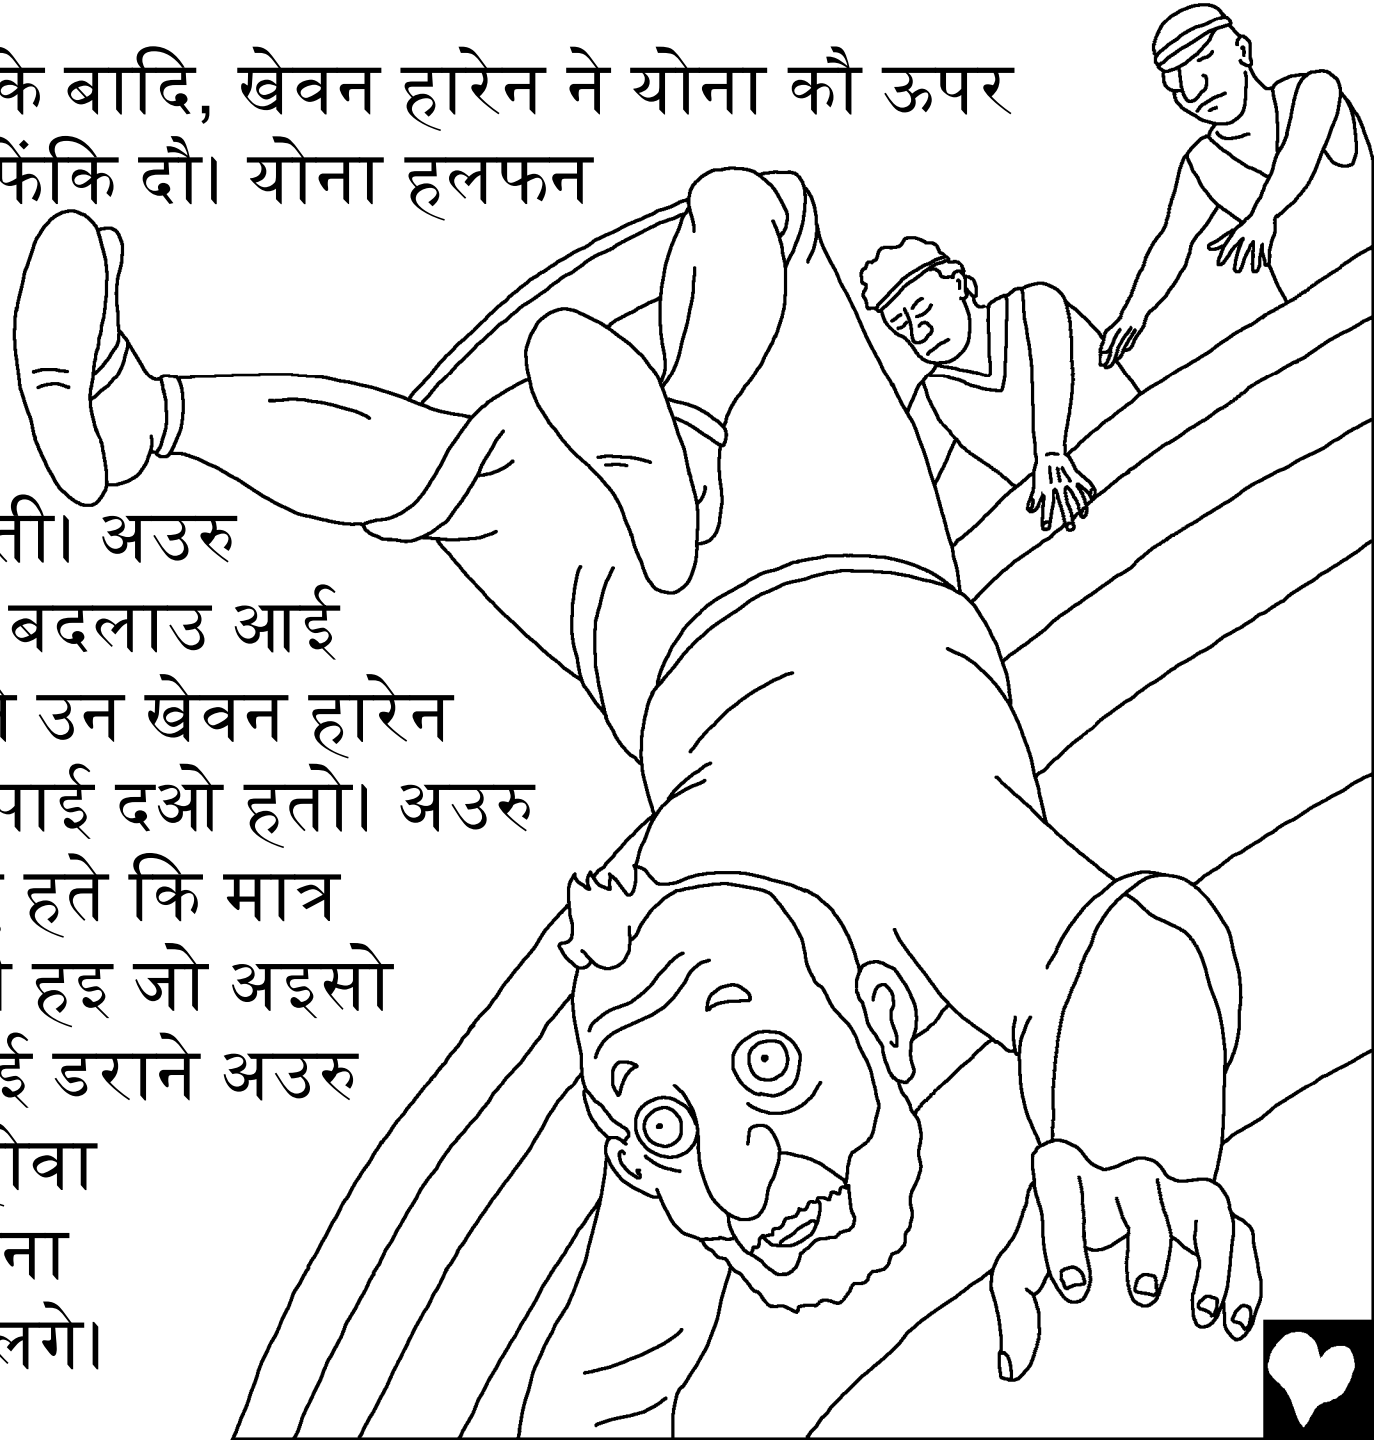 के बादि, खेवन हारेन ने योना कौ ऊपर
फेंकि दौ। योना हलफन
ती। अउरु
बदलाउ आई
उन खेवन हारेन
पाई दओ हतो। अउरु
हते कि मात्र
हइ जो अइसो
ई डराने अउरु
ीवा
ना
लगे।